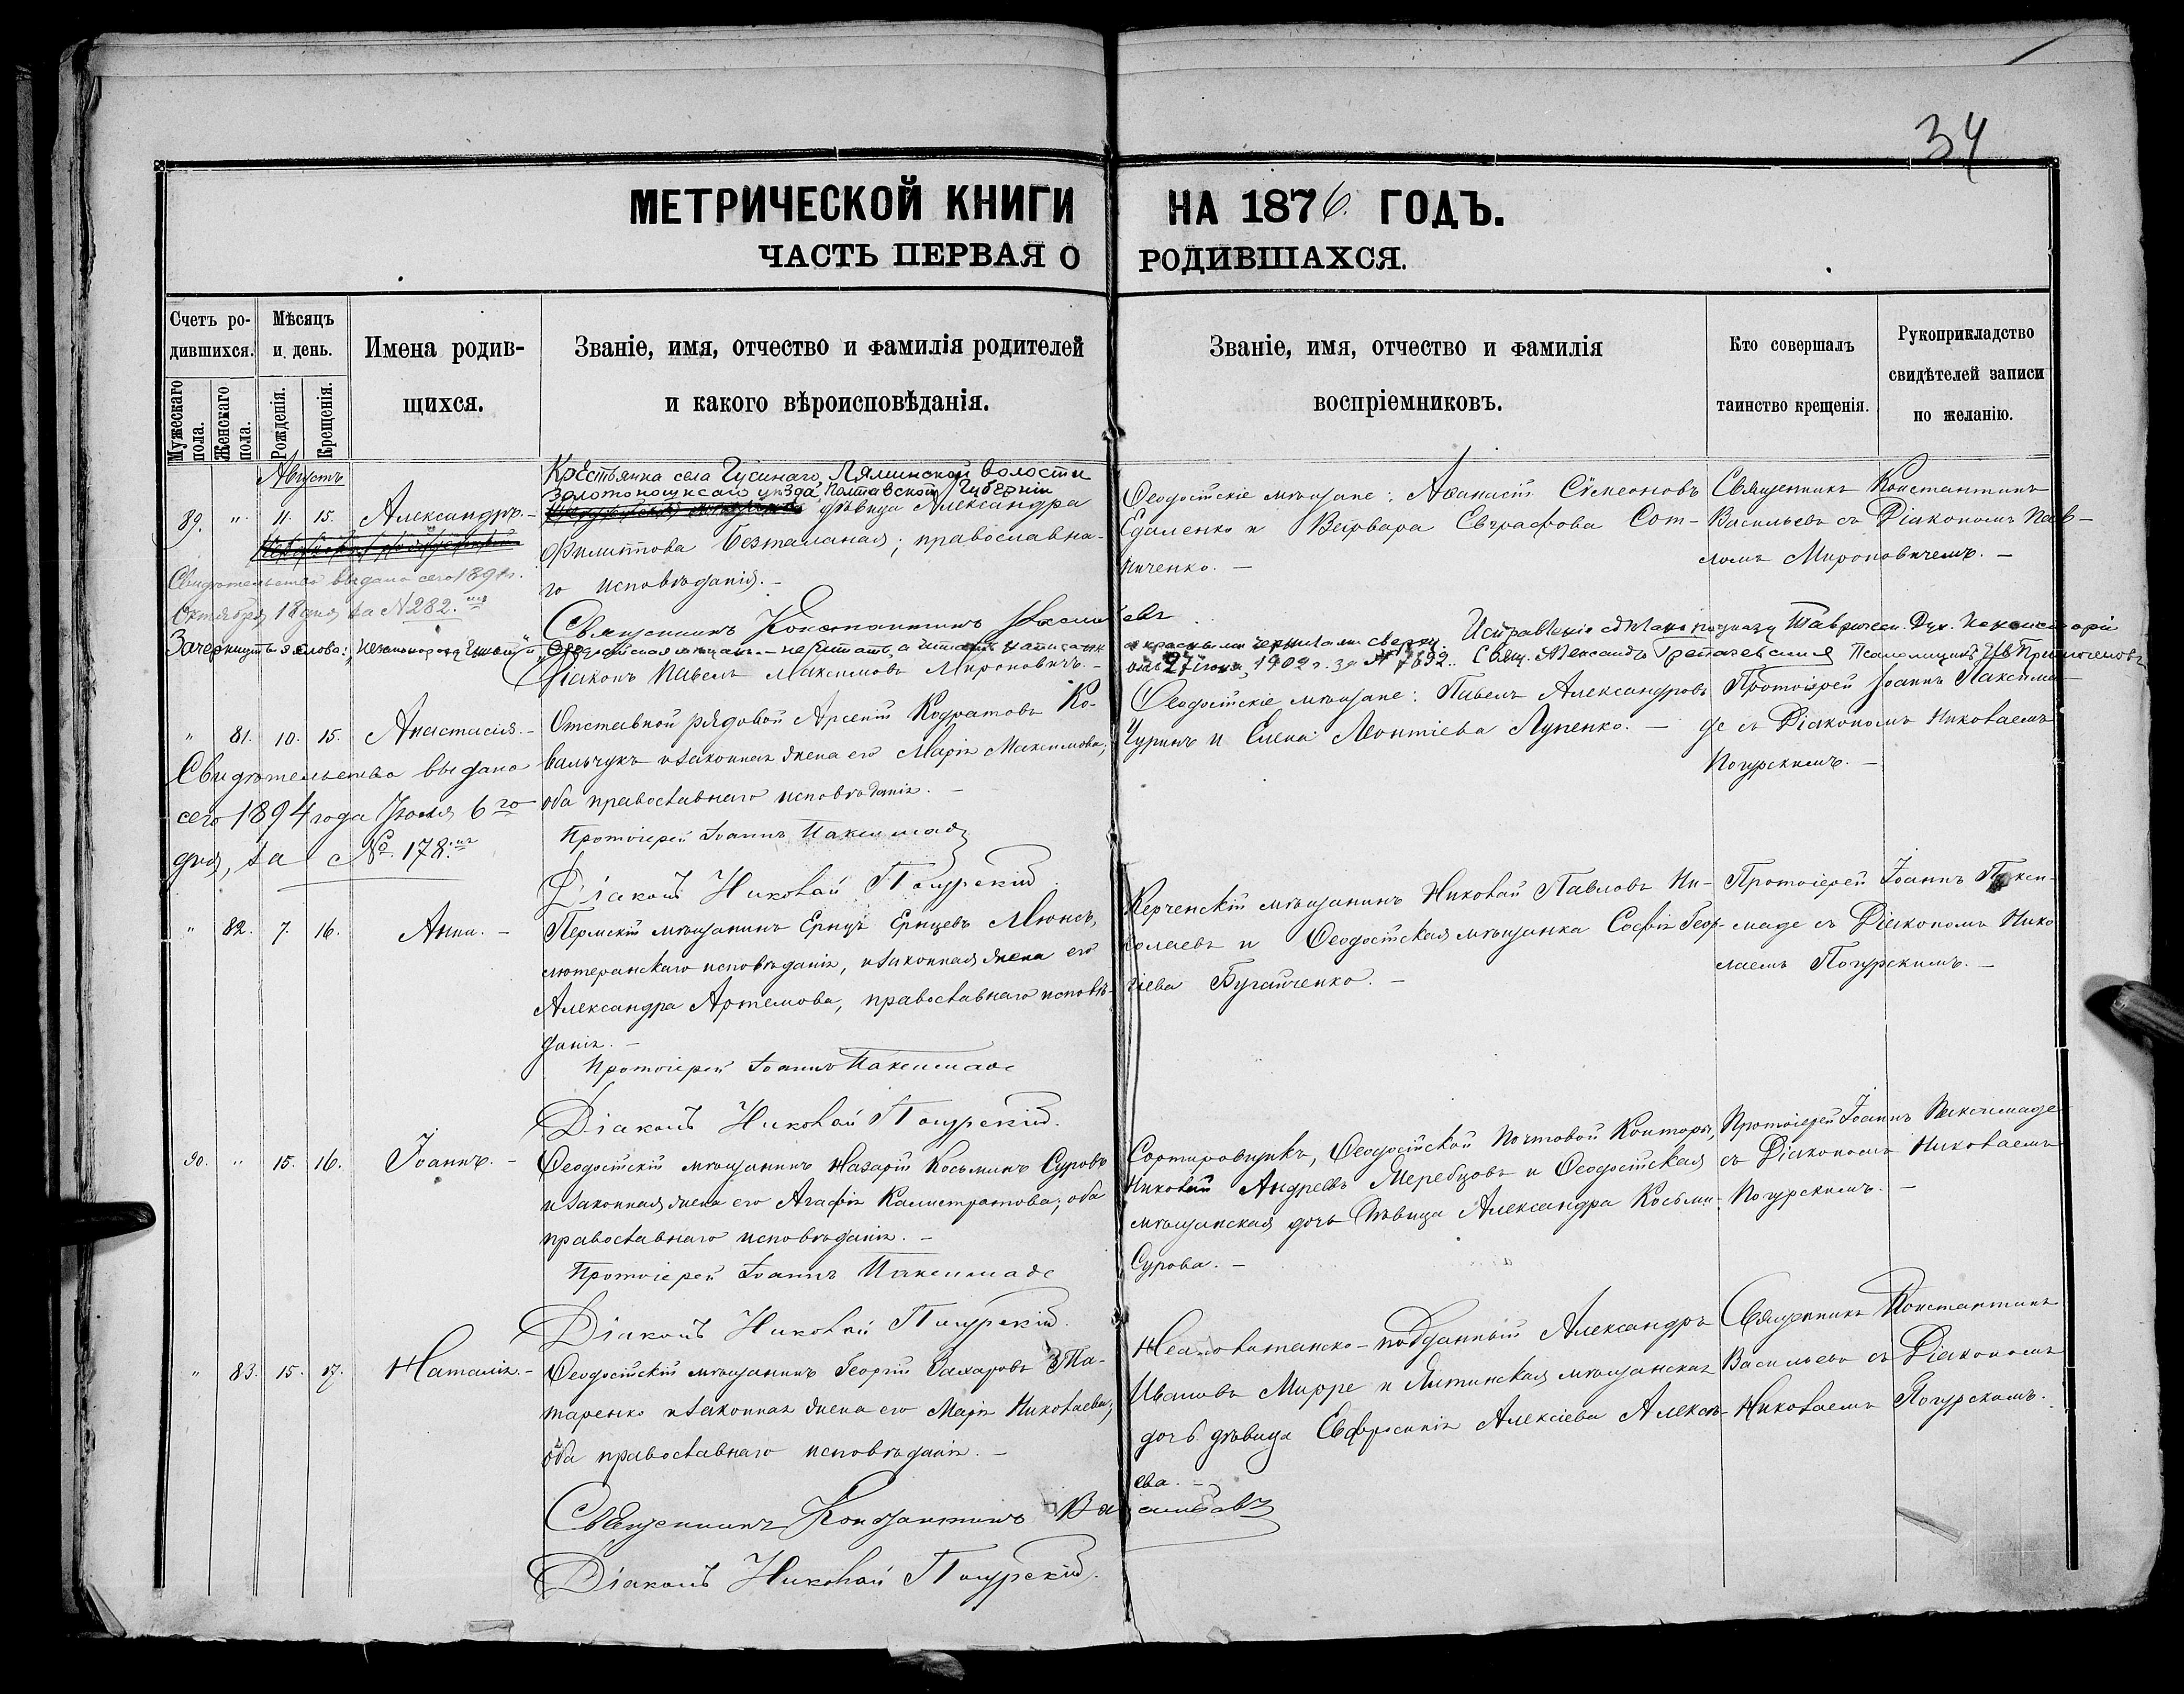 34
МЕТРИЧЕСКОЙ КНИГИ НА 1876. ГОДЪ.
ЧАСТЬ ПЕРВАЯ О РОДИВШАХСЯ.
Счетъ родившихся.
Мужескаго пола.
Женскаго пола.
Мѣсяцъ и день.
Рожденія.
Крещенія.
Имена родившихся.
Званіе, имя, отчество и фамилія родителей
и какого вѣроисповѣданія.
Званіе, имя, отчество и фамилія
воспріемниковъ.
Кто совершалъ
таинство крещенія.
Рукоприкладство
свидѣтелей записи
по желанію.
Августъ
89. " 11. 15. Александръ.-
Свидѣтельство выдано сего 1891 г.
Октября 18 дня за № 282.
Зачеркнутыя слова: „незаконорожденный" и
Крестьянка села Гусинаго, Лялинской волости
Золотоношскаго уѣзда, Полтавской Губерніи
дѣвица Александра
Филиппова Безталаная; православна-
го исповѣданія.-
Священникъ Константинъ Васильевъ
Діаконъ Павелъ Максимовъ Мироновичъ.-
Ѳеодосійскіе мѣщане: Аѳанасій Сѵмеоновъ
Едаленко и Варвара Евграфова Сот-
ниченко.-
Священникъ Константинъ
Васильевъ съ Діакономъ Пав-
ломъ Мироновичемъ.-
красными чернилами сверху Исправленіе сдѣлано по указу Тавричес. Дух. Консисторіи
отъ 27 1902 г. за № 7892. Свящ. Александръ Псаломщикъ
" 81. 10. 15. Анастасія.-
Свидѣтельство выдано
сего 1894 года Іюля 6го
дня, за № 178.
Отставной рядовой Арсеній Кодратовъ Ко-
вальчукъ и законная жена его Марія Максимова;
оба православнаго исповѣданія.-
Протоіерей Іоаннъ Паксимадъ
Діаконъ Николай Погурскій
Ѳеодосійскіе мѣщане: Павелъ Александровъ
Чуринъ и Елена Леонтіева Лупенко.-
Протоіерей Іоаннъ Паксима-
де съ Діакономъ Николаемъ
Погурскимъ.-
" 82. 7. 16. Анна.-
Пермскій мѣщанинъ Ернцъ Ернцевъ Мюнсъ,
лютеранскаго исповѣданія, и законная жена его
Александра Артемова, православнаго исповѣ-
данія.-
Протоіерей Іоаннъ Паксимаде
Діаконъ Николай Погурскій.
Керченскій мѣщанинъ Николай Павловъ Ни-
колаевъ и Ѳеодосійская мѣщанка Софія Геор-
гіева Бугайченко.-
Протоіерей Іоаннъ Пакси-
маде съ Діакономъ Нико
лаемъ Погурскимъ.-
90. " 15. 16. Іоаннъ.-
Ѳеодосійскій мѣщанинъ Назарій Косьминъ Суровъ
и законная жена его Агафія Калистратова; оба
православнаго исповѣданія.-
Протоіерей Іоаннъ Паксимаде
Діаконъ Николай Погурскій.
Сортировщикъ, Ѳеодосійской Почтовой Конторы,
Николай Андреевъ Меребцовъ и Ѳеодосійская
мѣщанская дочь дѣвица Александра Косьми-
Сурова.-
Протоіерей Іоаннъ Паксимаде
съ Діакономъ Николаемъ
Погурскимъ.-
" 83. 15. 17. Наталія.-
Ѳеодосійскій мѣщанинъ Георгій Захаровъ Та-
таренко и законная жена его Марія Николаева;
оба православнаго исповѣданія.-
Священникъ Константинъ Васильевъ
Діаконъ Николай Погурскій.
Неаполитанско-подданный Александръ
Ивановъ Мирре и Ялтинская мѣщанская
дочь дѣвица Евфросинія Алексіева Алексѣ-
ева.-
Священникъ Константинъ
Васильевъ съ Діакономъ
Николаемъ Погурскимъ.